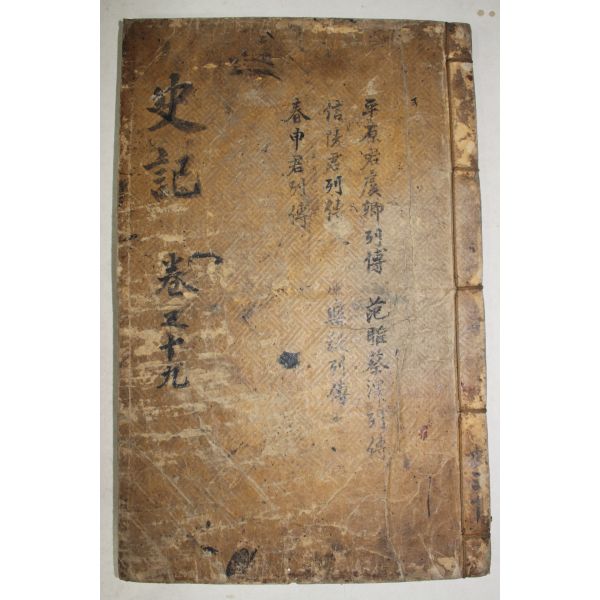 平原君虞卿列傳 范雎蔡澤列傳
信陵君列傳 樂毅列傳
春申君列傳
史記 卷五十九